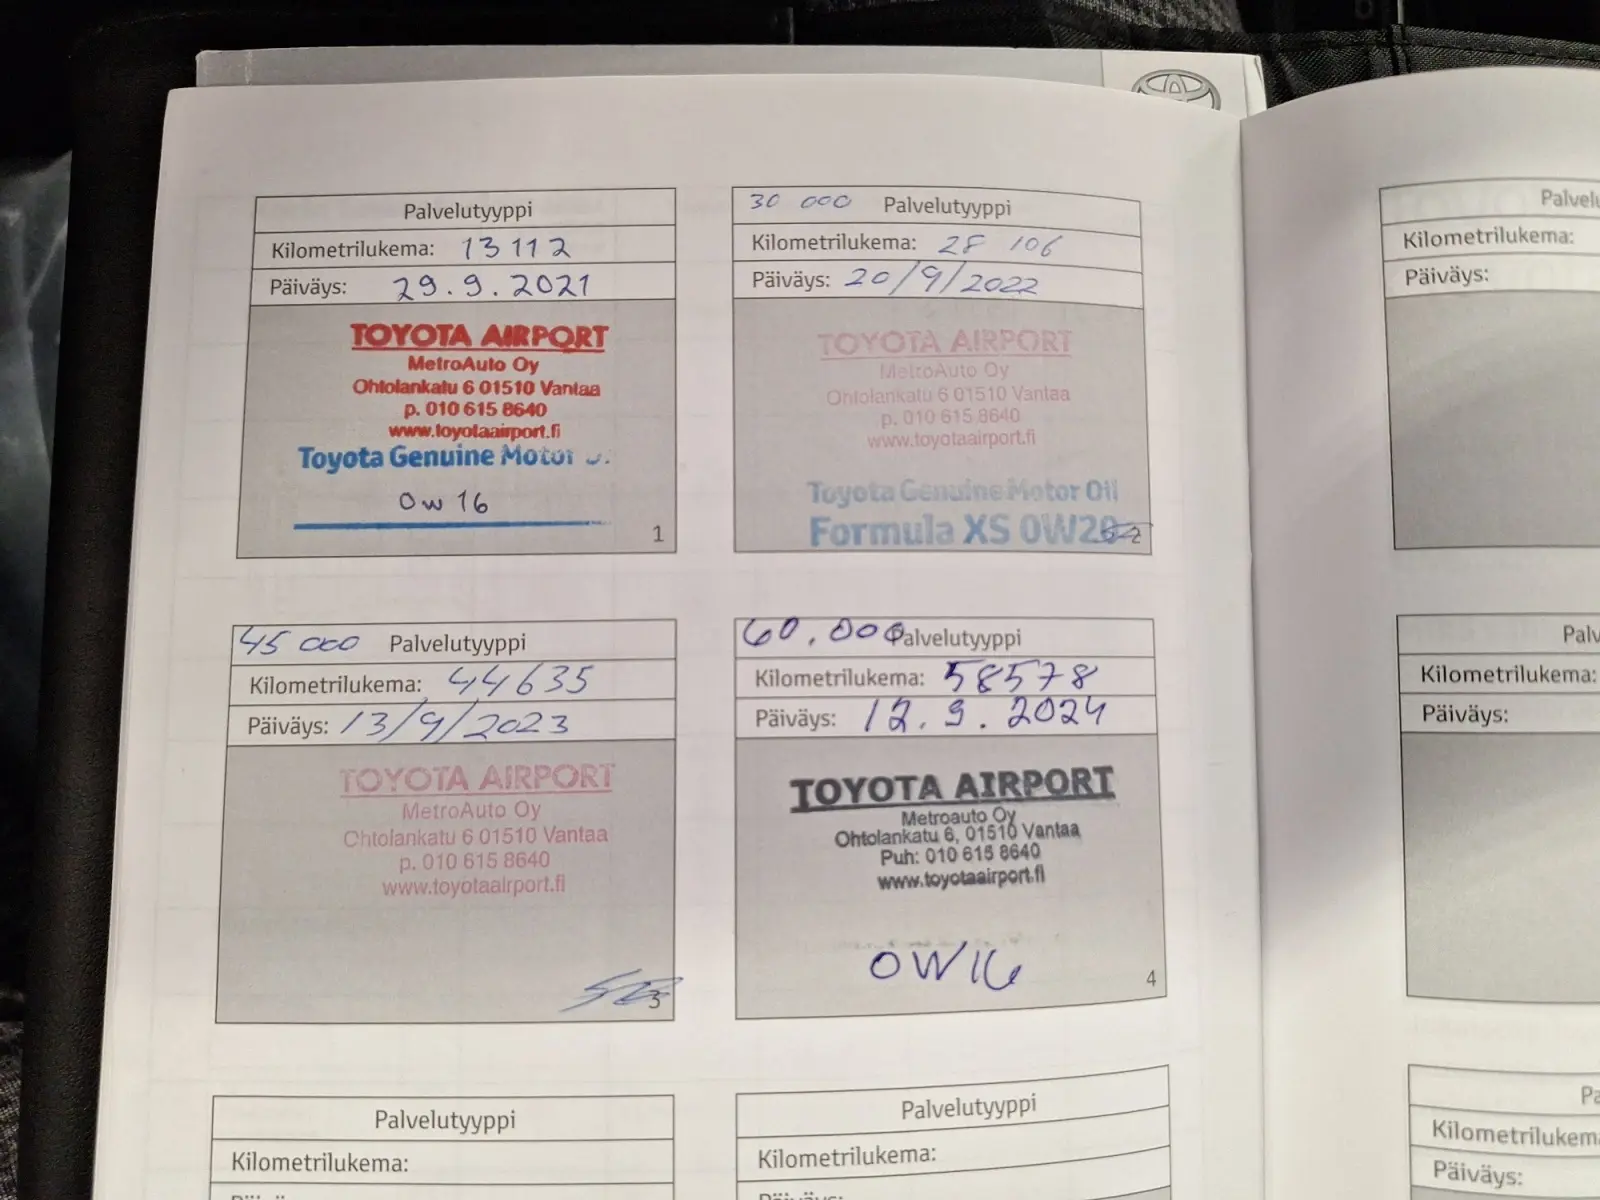 Palvelutyyppi
Kilometrilukema: 13112
Päiväys: 29.9.2021
TOYOTA AIRPORT
MetroAuto Oy
Ohtolankatu 6 01510 Vantaa
p. 010 615 8640
www.toyotaairport.fi
Toyota Genuine Motor
0W16
1
30 000 Palvelutyyppi
Kilometrilukema: 28 106
Päiväys: 20/9/2022
TOYOTA AIRPORT
MetroAuto Oy
Ohtolankatu 6 01510 Vantaa
p. 010 615 8640
www.toyotaairport.fi
Toyota Genuine Motor Oil
Formula XS 0W20
2
45 000 Palvelutyyppi
Kilometrilukema: 44635
Päiväys: 13/9/2023
TOYOTA AIRPORT
MetroAuto Oy
Ohtolankatu 6 01510 Vantaa
p. 010 615 8640
www.toyotaairport.fi
3
60.000 Palvelutyyppi
Kilometrilukema: 58578
Päiväys: 12.9.2024
TOYOTA AIRPORT
Metroauto Oy
Ohtolankatu 6, 01510 Vantaa
Puh: 010 615 8640
www.toyotaairport.fi
0W16
4
Palvelutyyppi
Kilometrilukema:
Palvelutyyppi
Kilometrilukema:
Päiväys:
Kilometrilukema:
Päiväys:
Kilometrilukema:
Päiväys:
Päiväys: